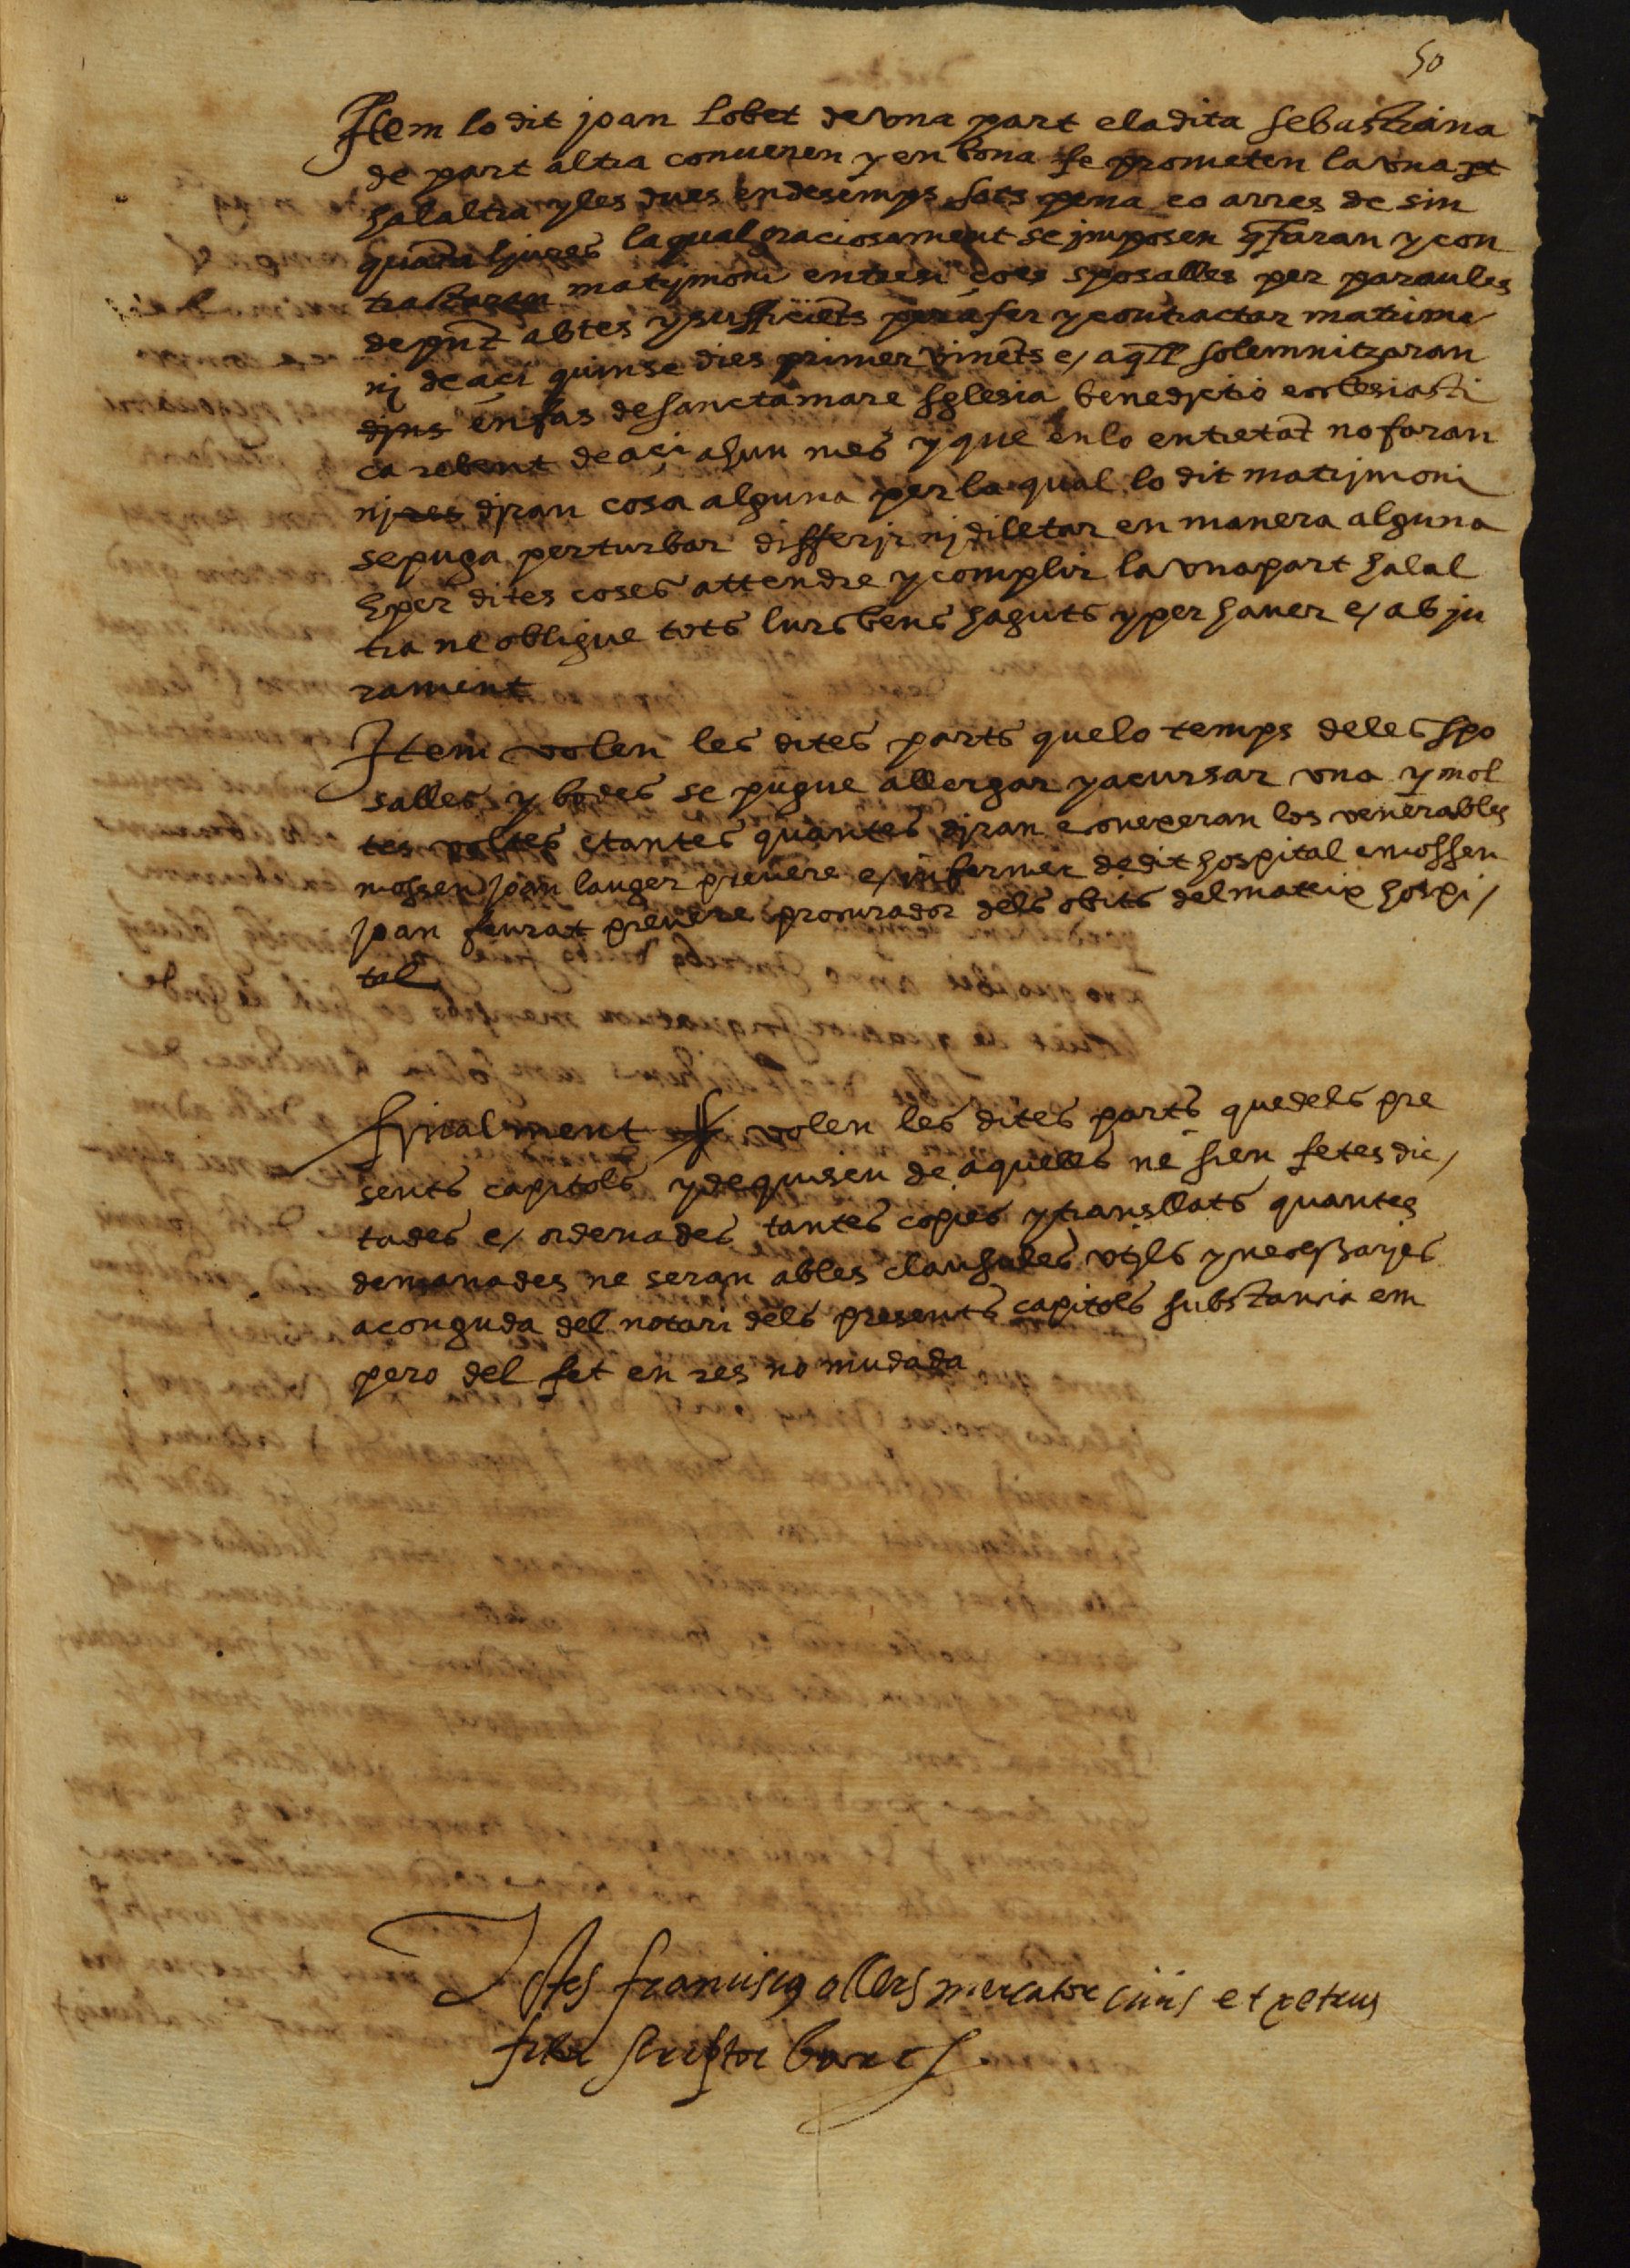 50
Item lo dit joan lobet de vna part e la dita sebastiana
de part altra conuenen y en bona fe prometen la vna pt
ha laltra y les dues endesemps sots pena eo arres de sin
quāta liures la qual graciosament se jmposen q̄ faran y con
tractaran matrjmoni entresi ço es sposalles per paraules
de pnt̄ abtes y sufficiēts pera fer y contractar matrimo
nj de açi quinse dies primer vinēts e/ aq̄ll solemnitzaran
djns en fas de sancta mare sglesia benedjctio ecclesiasti
ca rebent de açi a hun mes y que en lo entretāt no faran
nj res djran cosa alguna per la qual lo dit matrjmoni
se puga perturbar differjr nj diletar en manera alguna
E per dites coses attendre y complir la vna part ha lal
tra ne obligue tots lurs bens haguts y per hauer e/ ab ju
rament
Item volen les dites parts que lo temps de les spo
salles y bodes se pugue allergar y acursar vna y mol
tes voltes e tantes quantes djran e conexeran los venerables
mossen joan lauger preuere e/ infermer de dit hospital e mossen
joan ferrat preuere procurador dels obits del mateix hospi/
tal
Fynalment volen les dites parts que dels pre
sents capitols y de quiseu de aquells ne sien fetes dic/
tades e/ ordenades tantes copies y transllats quantes
demanades ne seran ab les clausules vtjls y neçessarjes
a coneguda del notari dels presents capitols substancia em
pero del fet en res no mudada
Testes franciscus ollers mercator ciuis et petrus
scriptor barc̄